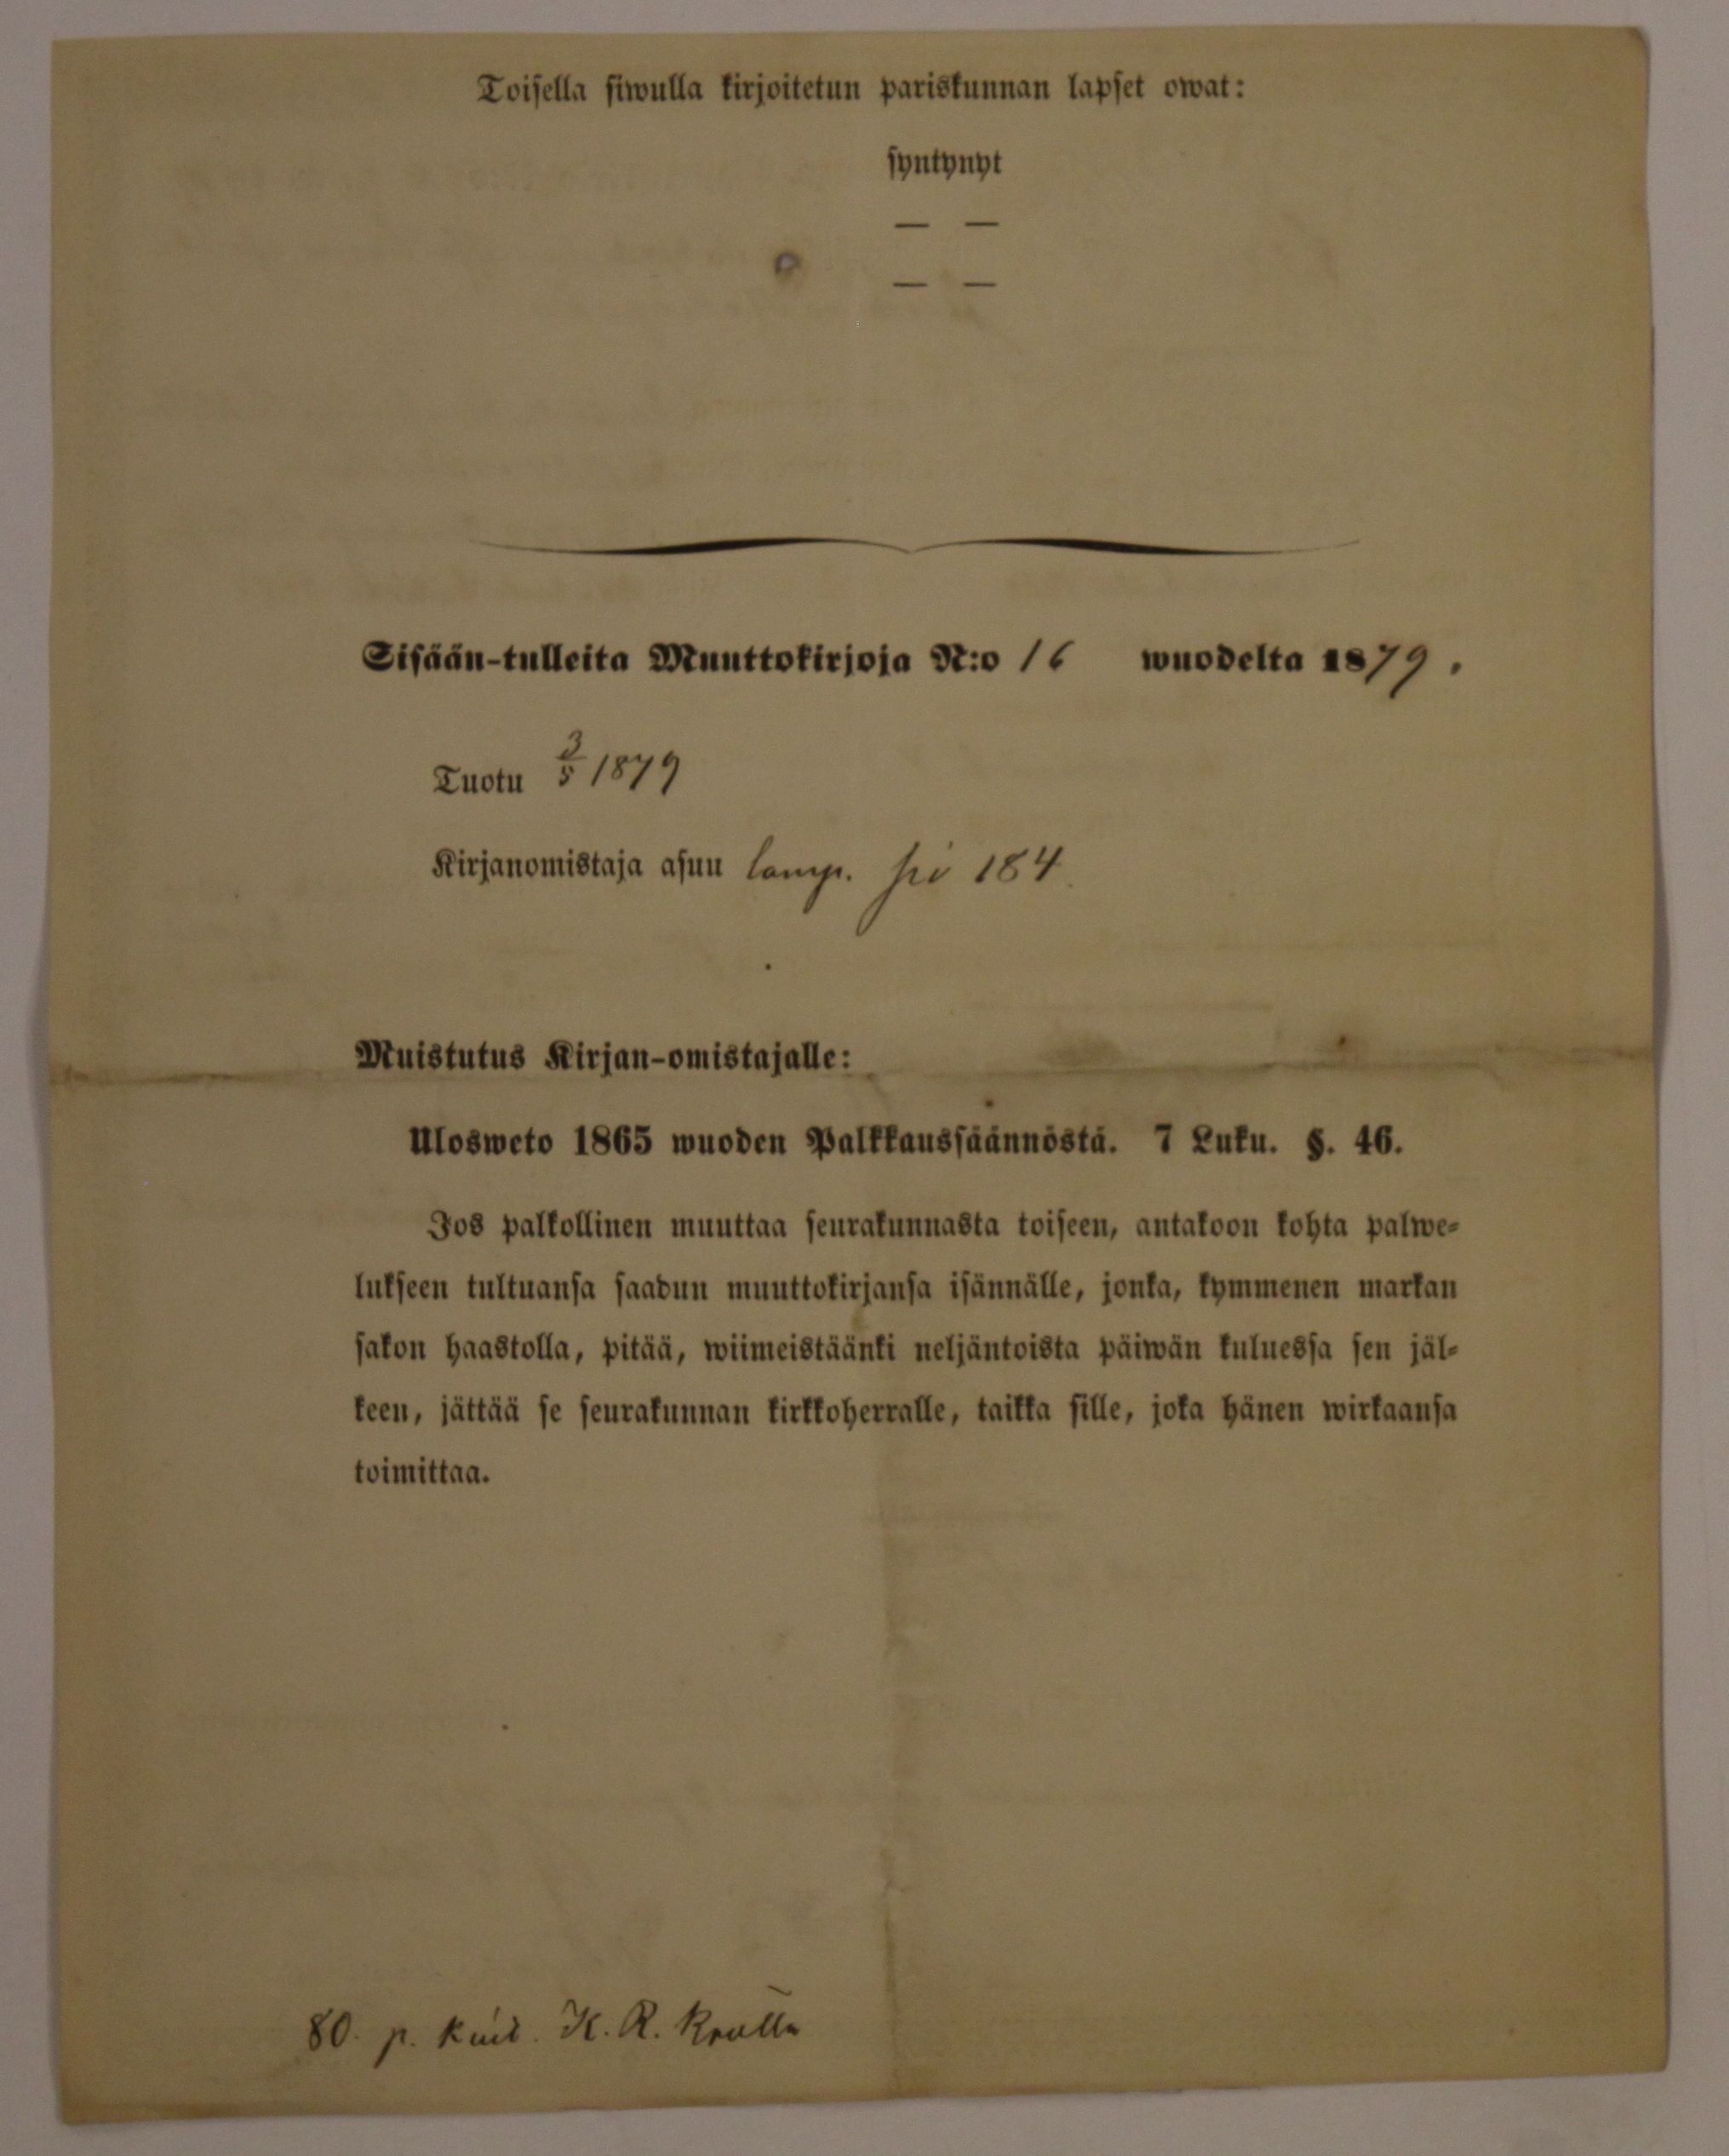 Toisella siwulla kirjoitetun pariskunnan lapset owat:
syntynyt
— —
— —
Sisään-tulleita Muuttokirjoja N:o 16 wuodelta 1879.
Tuotu 3/5 1879
Kirjanomistaja asuu 184
Muistutus Kirjan-omistajalle:
Ulosweto 1865 wuoden Palkkaussäännöstä. 7 Luku. §. 46.
Jos palkollinen muuttaa seurakunnasta toiseen, antakoon kohta palwe-
lukseen tultuansa saadun muuttokirjansa isännälle, jonka, kymmenen markan
sakon haastolla, pitää, wiimeistäänki neljäntoista päiwän kuluessa sen jäl-
keen, jättää se seurakunnan kirkkoherralle, taikka sille, joka hänen wirkaansa
toimittaa.
80. p. K. R.